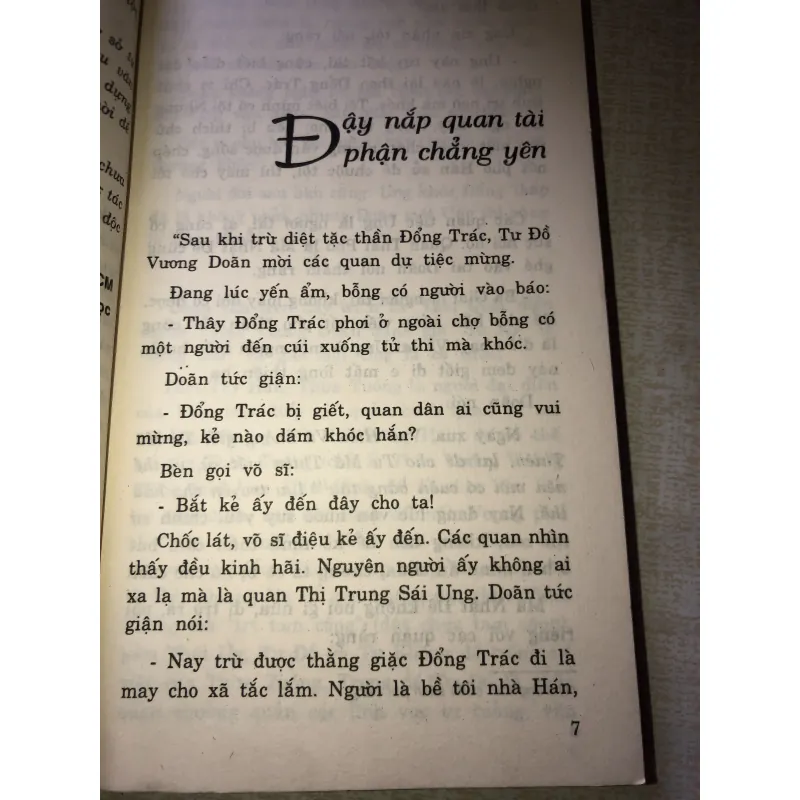 Đậy nắp quan tài
phận chẳng yên
“Sau khi trừ diệt tặc thần Đổng Trác, Tư Đồ
Vương Doãn mời các quan dự tiệc mừng.
Đang lúc yến ẩm, bỗng có người vào báo:
- Thây Đổng Trác phơi ở ngoài chợ bỗng có
một người đến cúi xuống tử thi mà khóc.
Doãn tức giận:
- Đổng Trác bị giết, quan dân ai cũng vui
mừng, kẻ nào dám khóc hắn?
Bèn gọi võ sĩ:
- Bắt kẻ ấy đến đây cho ta!
Chốc lát, võ sĩ điệu kẻ ấy đến. Các quan nhìn
thấy đều kinh hãi. Nguyên người ấy không ai
xa lạ mà là quan Thị Trung Sái Ung. Doãn tức
giận nói:
- Nay trừ được thằng giặc Đổng Trác đi là
may cho xã tắc lắm. Người là bề tôi nhà Hán,
7